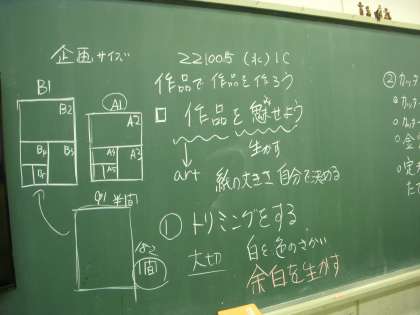 企画サイズ
221005 (水) 1C
作品で作品を作ろう
B1
B2
B3
B4
A1
A2
A3
A4
A5
□ 作品を魅せよう
生かす
art
紙の大きさ自分で決める
91 半間
182
1間
① トリミングをする
大切
白と色のさかい
余白を生かす
② カッター